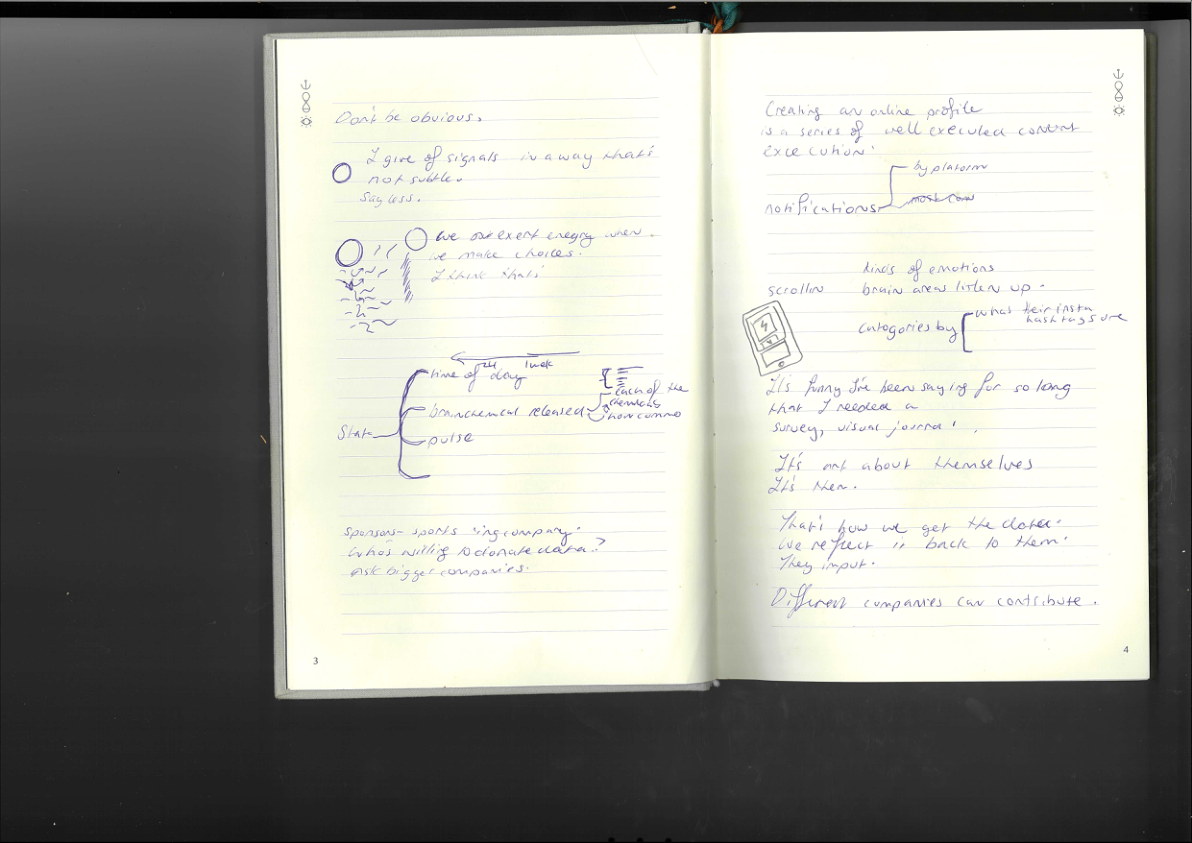 Don't be obvious.
I give of signals in a way that's
not subtle.
Say less.
We exert enegry when
we make choices.
I think that's
24 1 week
time of day
State
brainchemical released
lack of the
chemicals
how common
pulse
Sponsors - sports 'ing company'
who's willing to donate data?
ask bigger companies.
3
Creating an online profile
is a series of well executed content
execution.
by platorm
notifications
most com
kinds of emotions
scrollin brain areas listen up.
catogories by
what their insta
hashtags are
It's funny I've been saying for so long
that I needed a
survey, visual journal.
It's not about themselves
It's them.
That's how we get the data.
We reflect it back to them.
They input.
Different companies can contribute.
4